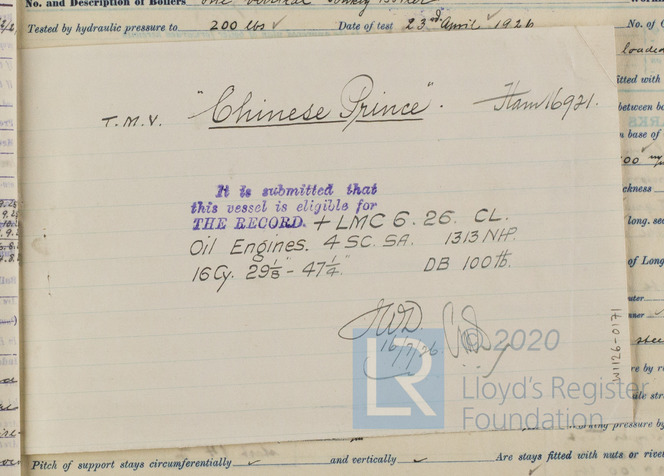 No. and Description of Boilers One Vertical Donkey Boiler
Tested by hydraulic pressure to 200 lbs ✓ Date of test 23rd April 1926 No. of
loaded
itted with
T.M.V. "Chinese Prince". Ham 16921.
between bo
n base of
It is submitted that
this vessel is eligible for
THE RECORD. + LMC 6.26. CL.
Oil Engines. 4 SC. SA. 1313 NHP.
16 Cy. 29 1/8" - 47 1/4" DB 100 lb.
ckness
long. sec
of Long
16/7/26
© 2020
LR
Lloyd's Register
Foundation
W1126-0171
orking pressure by
Pitch of support stays circumferentially ✓ and vertically ✓ Are stays fitted with nuts or rive